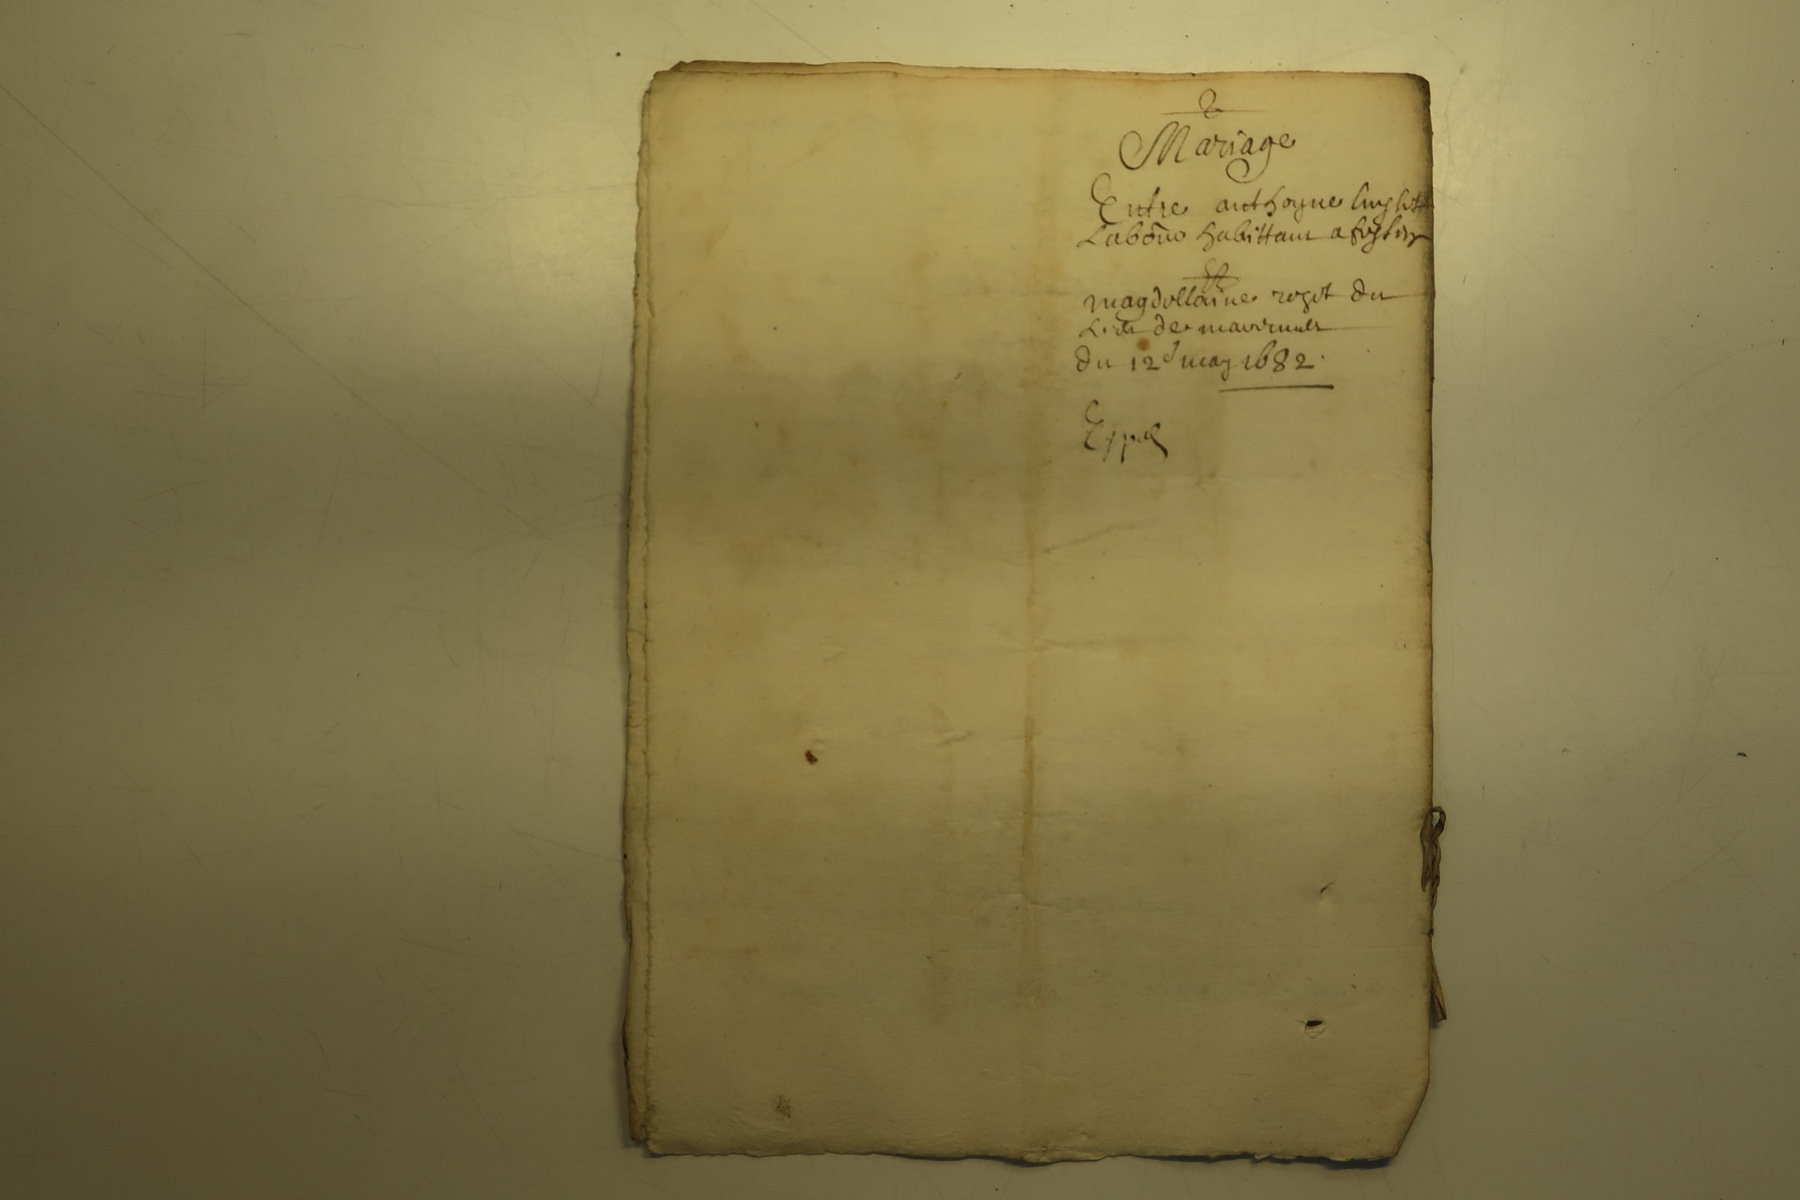 2
Mariage
Entre anthoyne
Labour habittant a
Et
magdellaine rozet du
Lieu de
du 12e may 1682
Expe